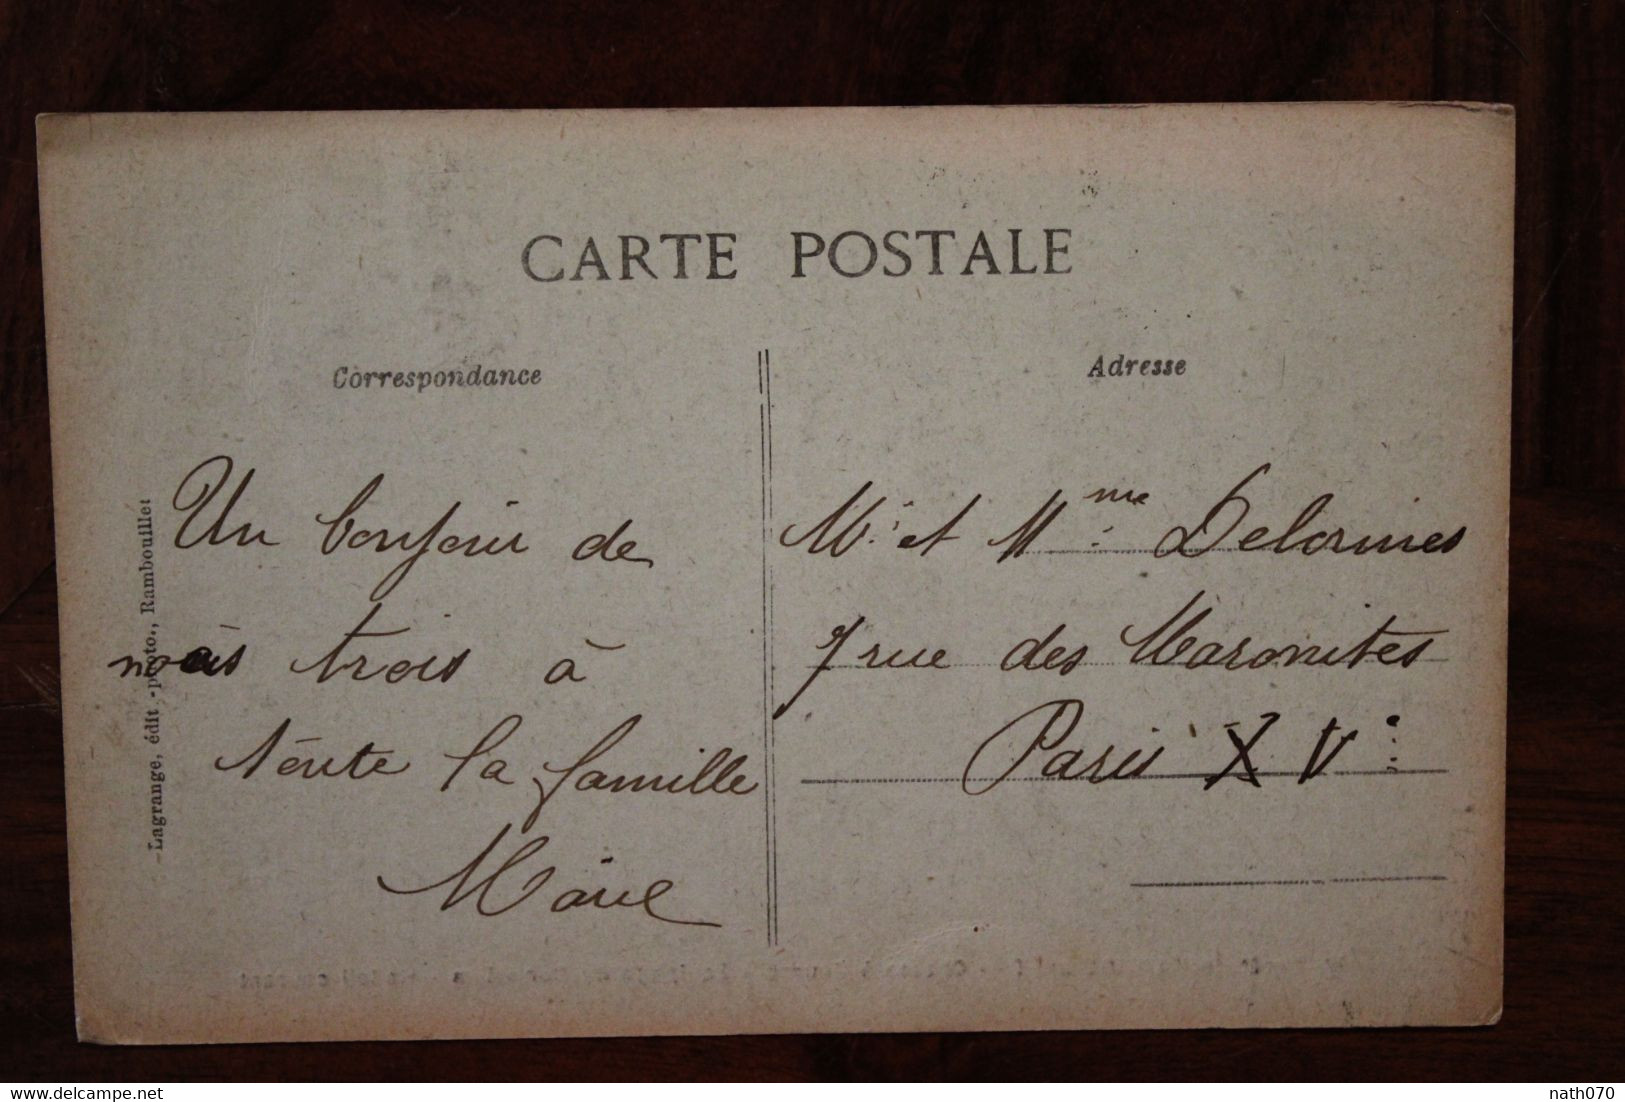 CARTE POSTALE
Correspondance
Un bonjour de
nous trois à
toute la famille
Marie
Lagrange, édit.-photo., Rambouillet
Adresse
Mr et Mme Delormes
7 rue des Maronites
Paris XVe
www.delcampe.net
nath070